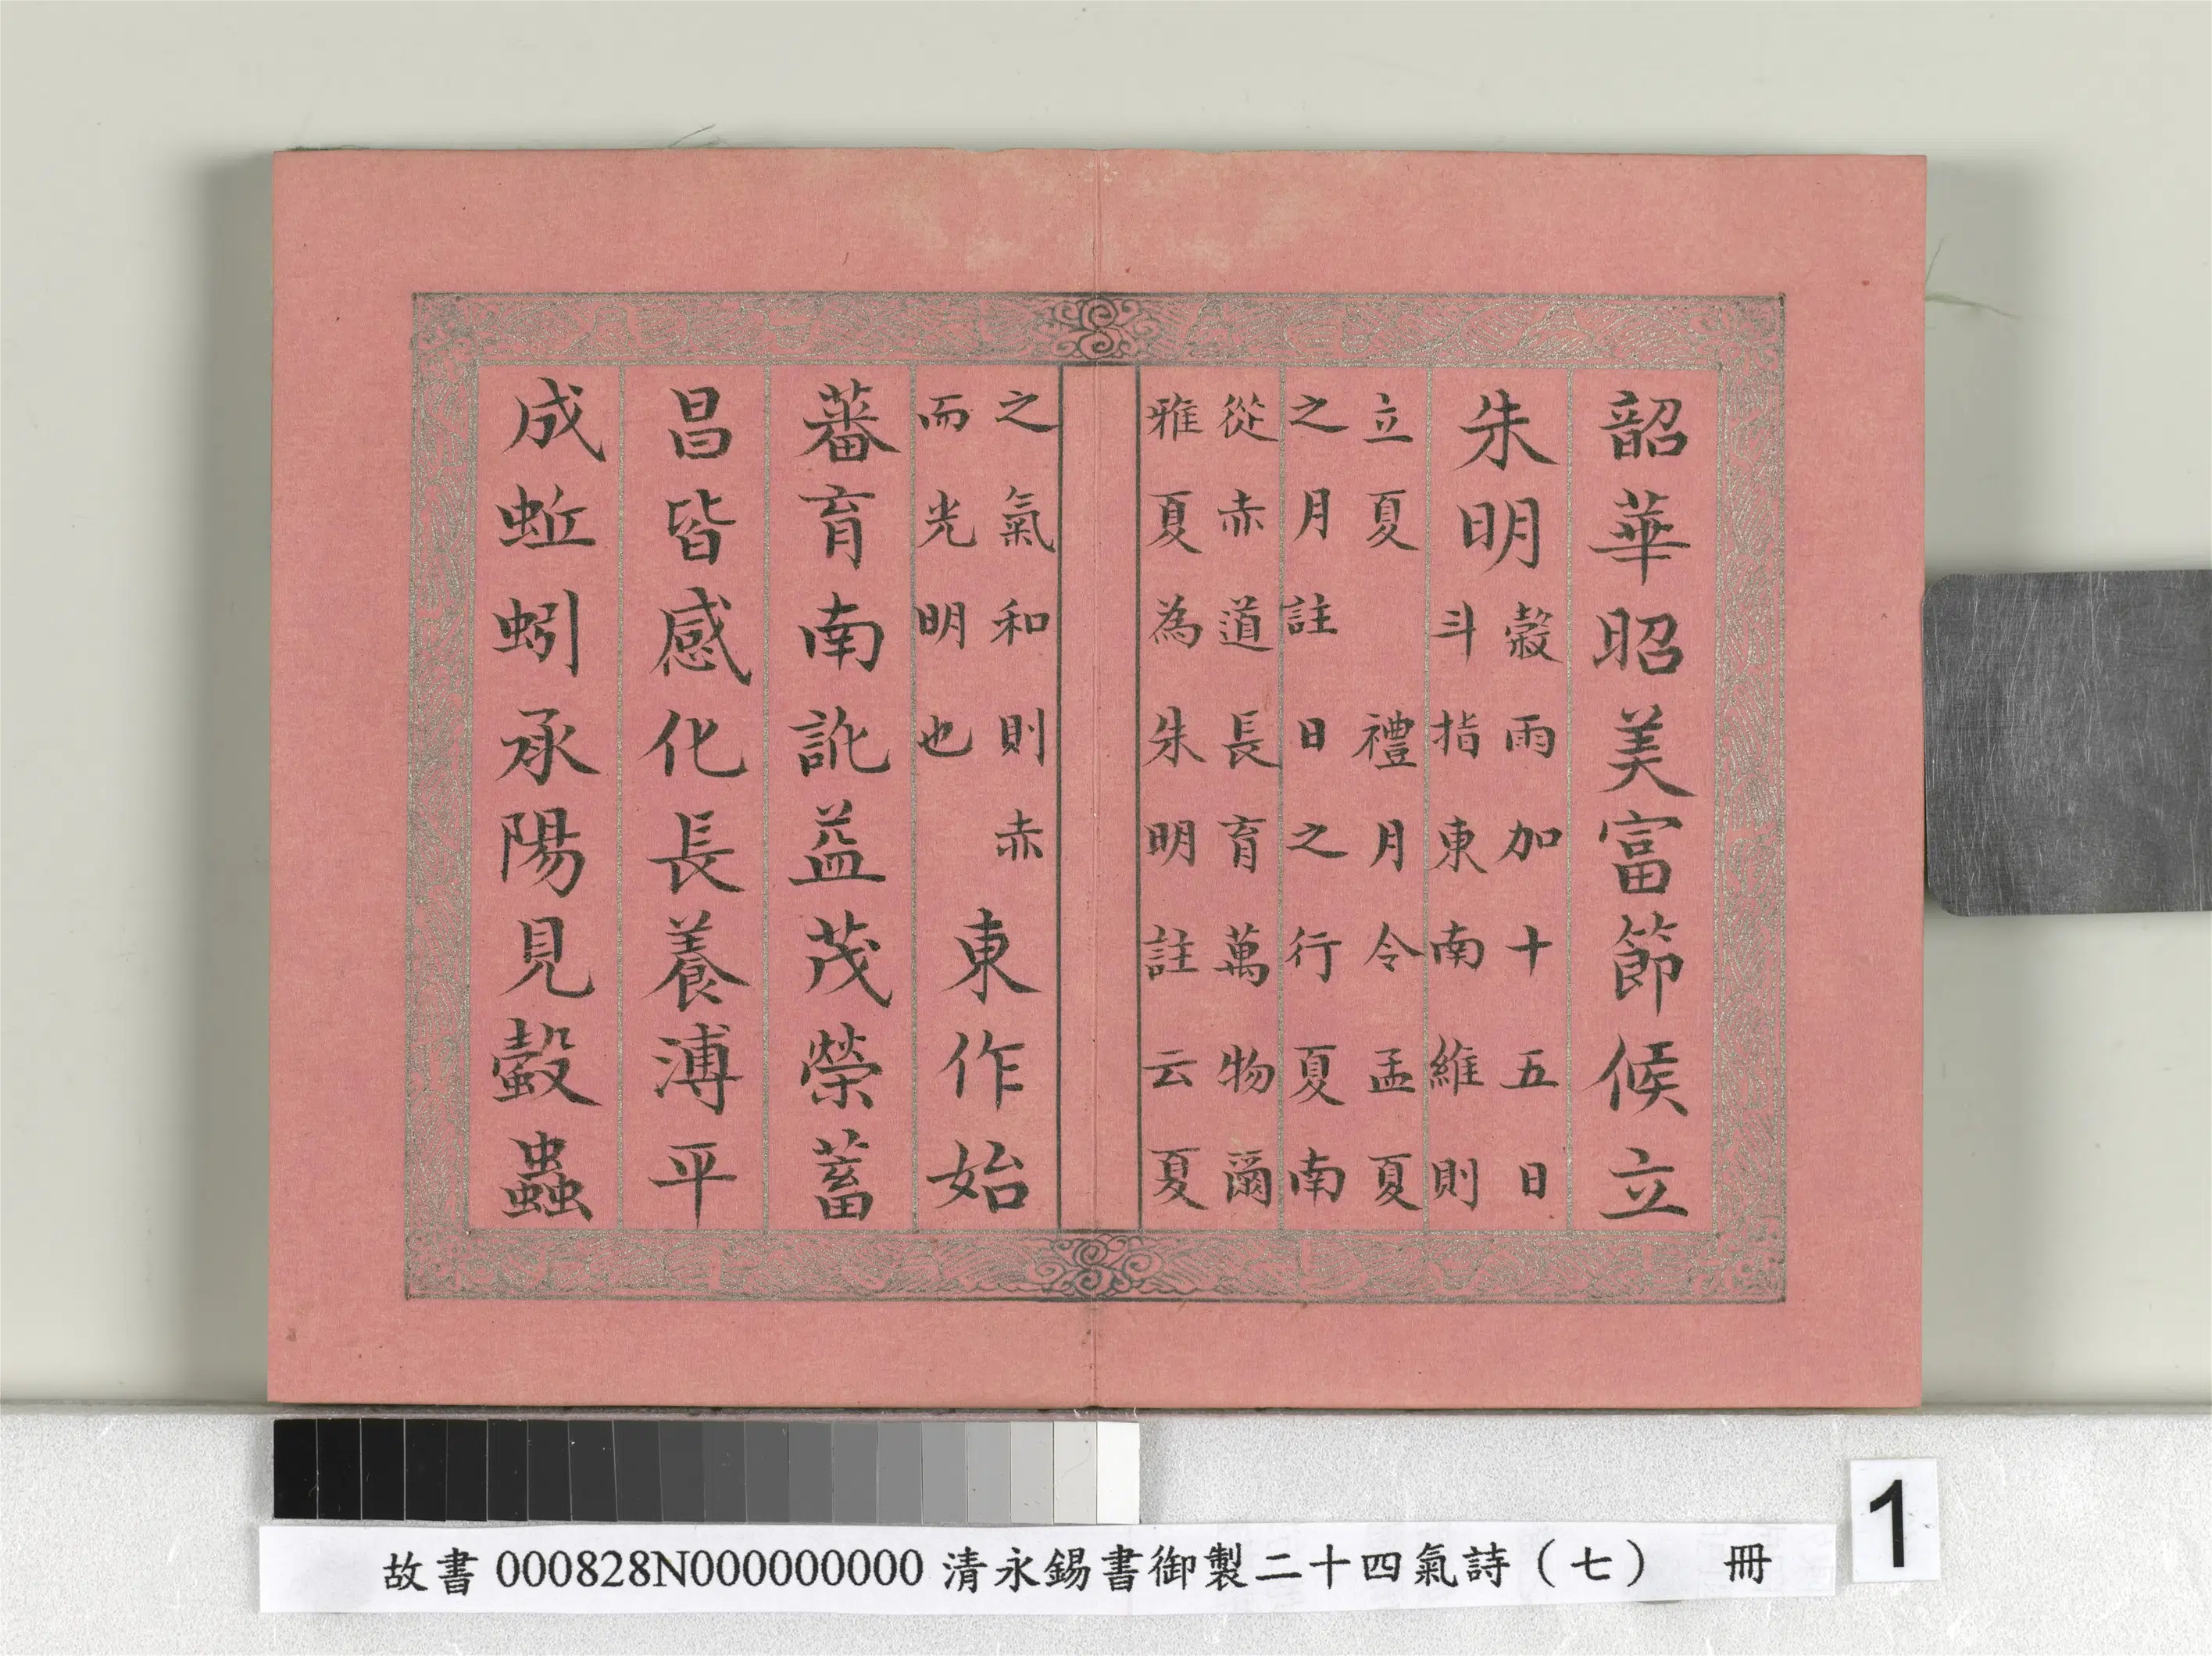 韶華昭美富節候立
朱明
穀雨加十五日
斗指東南維則
立夏 禮月令孟夏
之月註日之行夏南
從赤道長育萬物爾
雅夏為朱明註云夏
之氣和則赤
而光明也
東作始
蕃育南訛益茂榮蓄
昌皆感化長養溥平
成蚯蚓承陽見螜蟲
故書 000828N000000000 清永錫書御製二十四氣詩（七） 冊
1